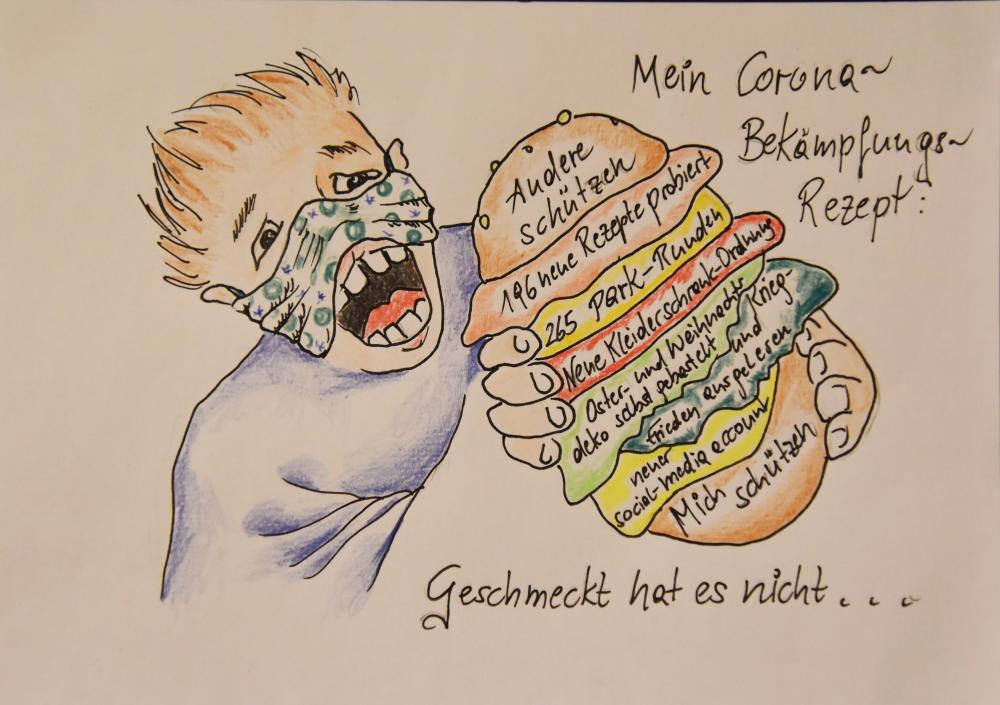 Mein Corona~
Bekämpfungs~
Rezept:
Andere
schützen
196 neue Rezepte probiert
265 Park-Runden
Neue Kleiderschrank-Ordnung
Oster- und Weihnachts
deko selbst gebastelt
Krieg-
und
frieden ausgelesen
neuer
social-media account
Mich schützen
Geschmeckt hat es nicht....